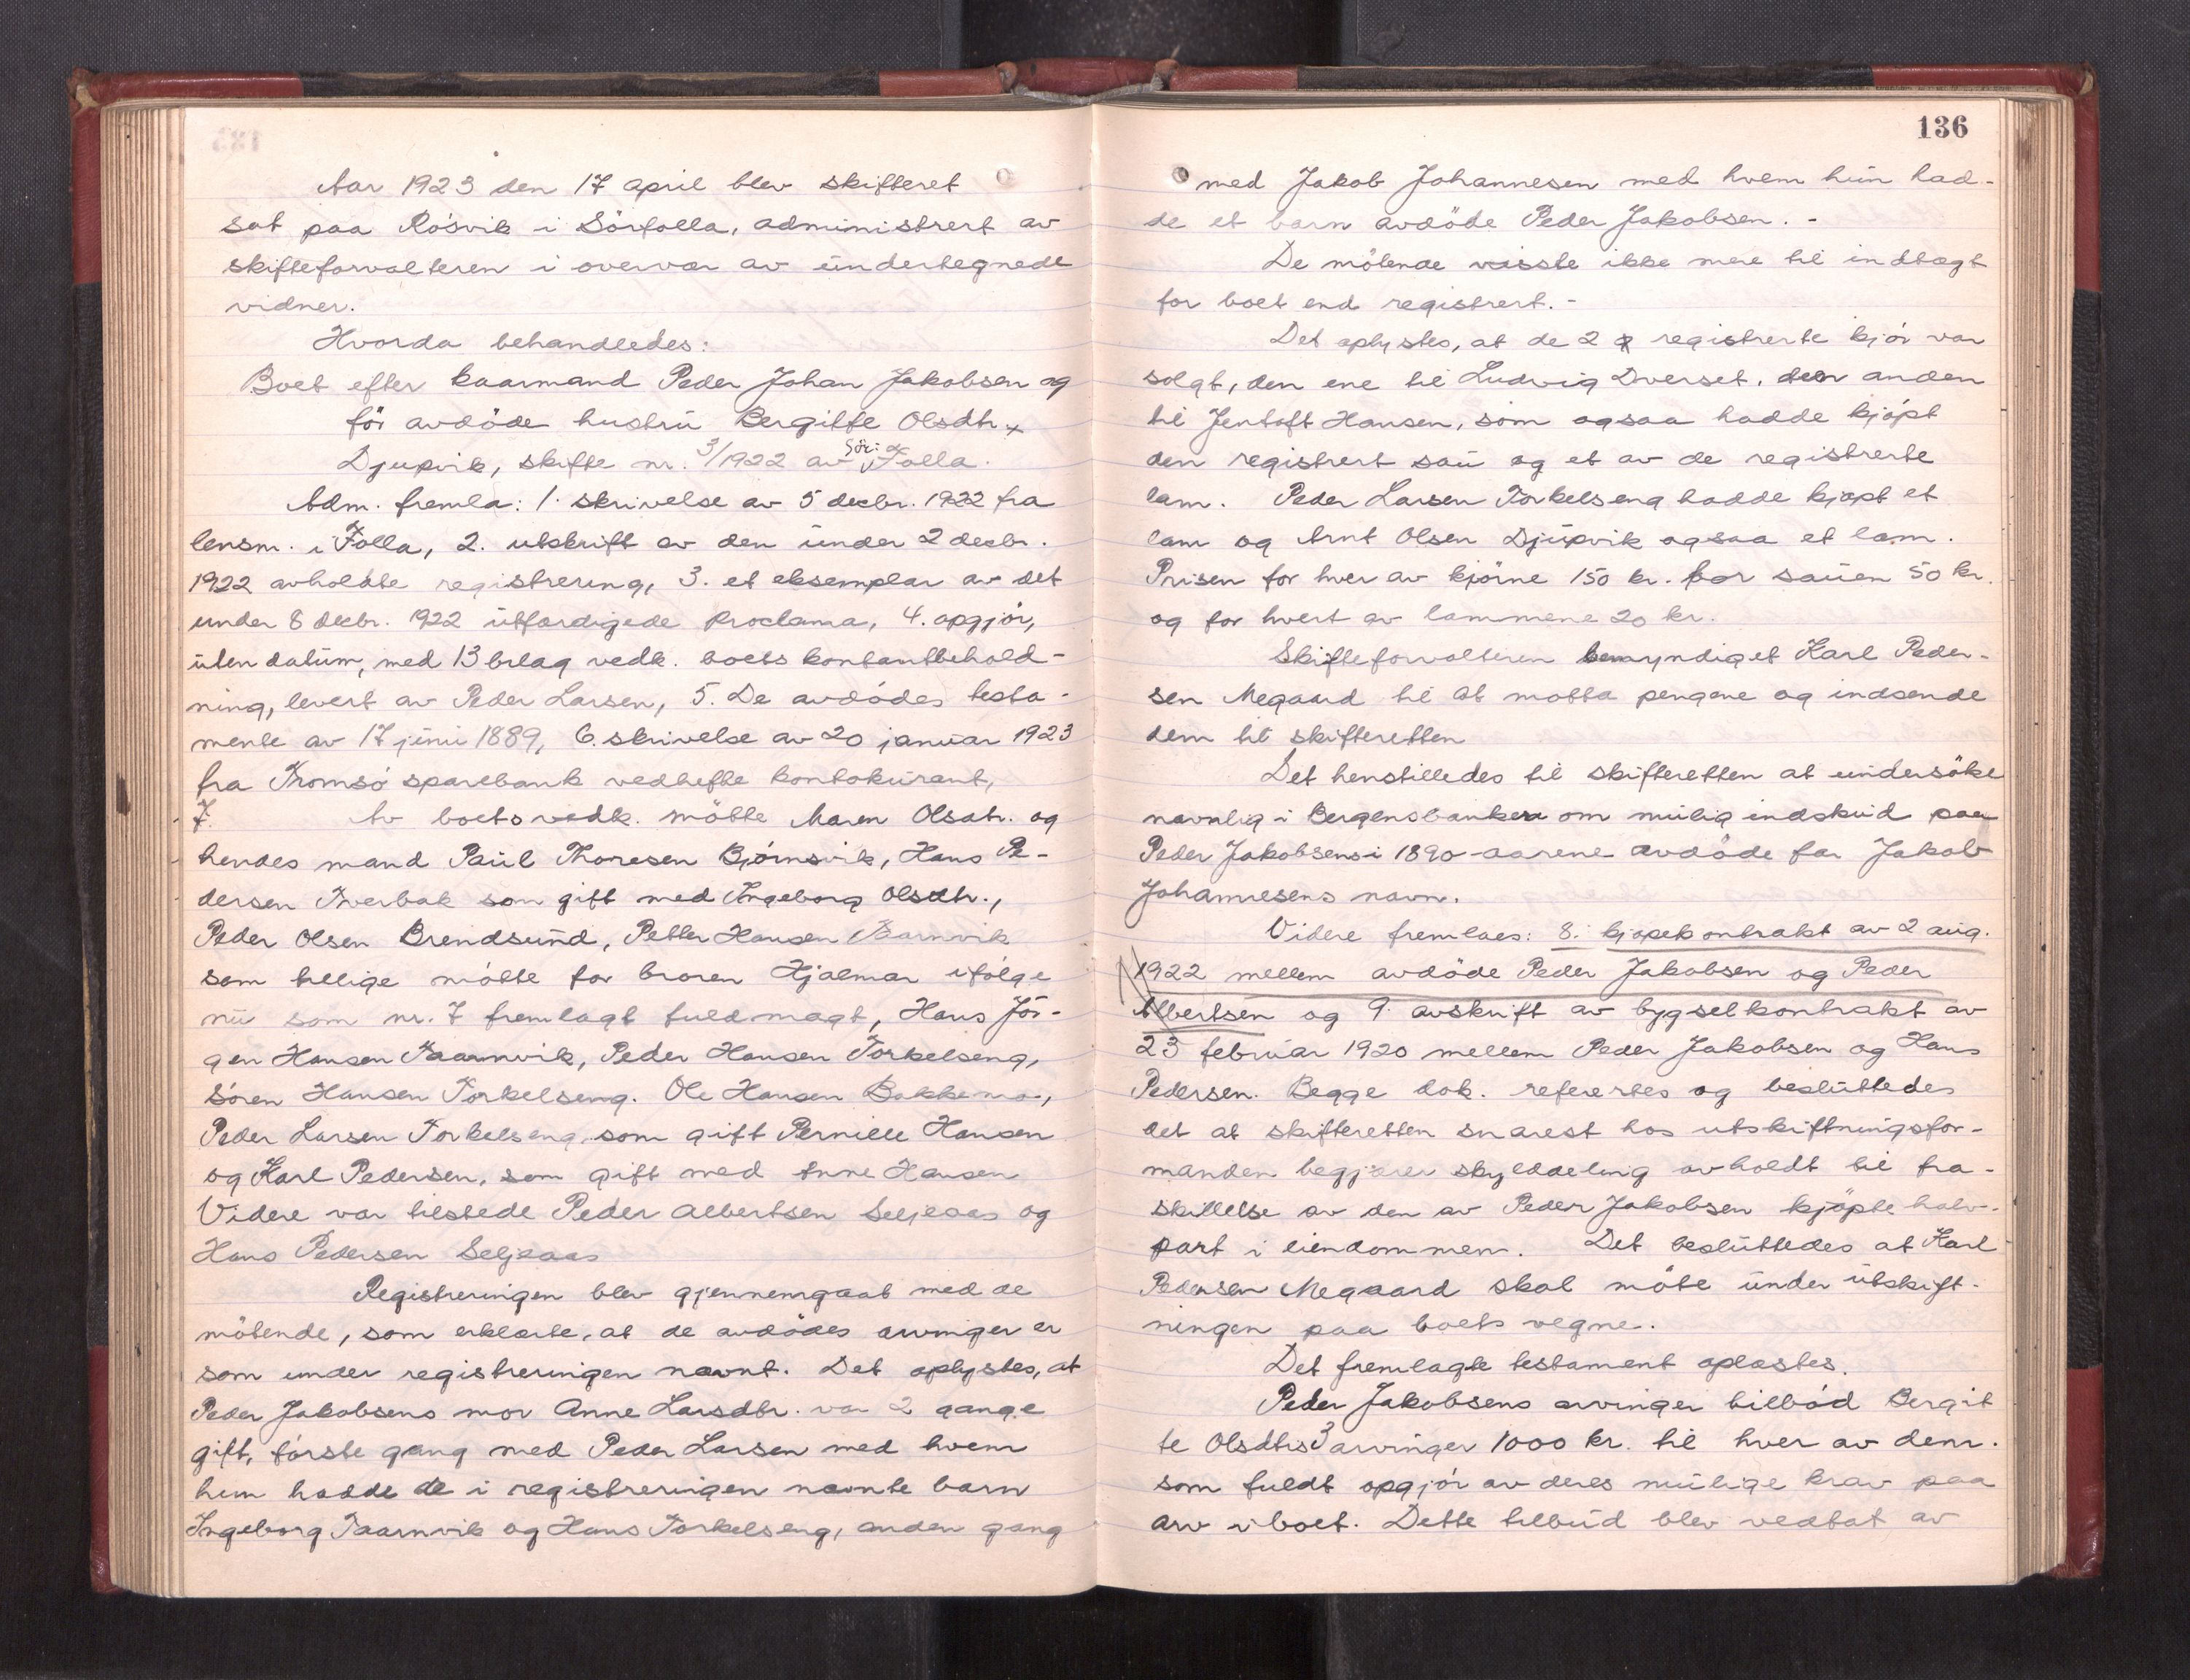 Aar 1923 den 17 april blev skifteret
sat paa Rösvik i Sörfolla, administrert av
skifteforvalteren i overvær av undertegnede
vidner.
Hvorda behandledes:
Boet efter kaarmand Peder Johan Jakobsen og
för avdöde hustru Bergitte Olsdtr
Djupvik, skifte nr. 3/1922 av Sör-Folla.
Adm. fremla: 1. skrivelse av 5 decbr. 1922 fra
lensm. i Folla, 2. utskrift av den under 2 decbr.
1922 avholdte registrering, 3. et eksemplar av det
under 8 decbr. 1922 utfærdigede proclama, 4. opgjör,
uten datum, med 13 bilag vedk. boets kontantbehold-
ning, levert av Peder Larsen, 5. De avdödes testa-
mente av 17 juni 1889, 6. skrivelse av 20 januar 1923
fra Tromsö sparebank vedhefte kontokurant,
7. Av boets vedk. mötte Maren Olsdtr. og
hendes mand Paul Thoresen Björnsvik, Hans Pe-
dersen Tverbak som gift med Ingeborg Olsdtr.,
Peder Olsen Brendsund, Petter Hansen Taarnvik
som tillige mötte for broren Hjalmar ifölge
nu som nr. 7 fremlagt fuldmagt, Hans Jör-
gen Hansen Taarnvik, Peder Hansen Torkelseng,
Sören Hansen Torkelseng. Ole Hansen Bakkemo,
Peder Larsen Torkelseng, som gift Pernille Hansen
og Karl Pedersen, som gift med Anne Hansen
Videre var tilstede Peder Albertsen Seljeaas og
Hans Pedersen Seljeaas
Registreringen blev gjennemgaat med de
mötende, som erklærte, at de avdödes arvinger er
som under registreringen nævnt. Det oplystes, at
Peder Jakobsens mor Anne Larsdtr. var 2 gange
gift, förste gang med Peder Larsen med hvem
hun hadde de i registreringen nævnte barn
Ingeborg Taarnvik og Hans Torkelseng, anden gang
136
med Jakob Johannesen med hvem hun had-
de et barn avdöde Peder Jakobsen. -
De mötende visste ikke mere til indtægt
for boet end registrert. -
Det oplystes, at de 2 registrerte kjör var
solgt, den ene til Ludvig Dverset, den anden
til Jentoft Hansen, som ogsaa hadde kjöpt
den registrert sau og et av de registrerte
lam. Peder Larsen Torkelseng hadde kjöpt et
lam og Arnt Olsen Djupvik ogsaa et lam.
Prisen for hver av kjörne 150 kr. for sauen 50 kr.
og for hvert av lammene 20 kr.
Skifteforvalteren bemyndiget Karl Peder-
sen Megaard til at motta pengene og indsende
dem til skifteretten
Det henstilledes til skifteretten at undersöke
navnlig i Bergensbanken om mulig indskud paa
Peder Jakobsens i 1890-aarene avdöde far Jakob
Johannesens navn.
Videre fremlaes: 8. kjöpekontrakt av 2 aug.
1922 mellem avdöde Peder Jakobsen og Peder
Albertsen og 9. avskrift av bygselkontrakt av
23 februar 1920 mellem Peder Jakobsen og Hans
Pedersen. Begge dok. refertes og besluttedes
det at skifteretten snarest hos utskiftningsfor-
manden begjærer skylddeling avholdt til fra-
skillelse av den av Peder Jakobsen kjöpte halv-
part i eiendommen. Det besluttedes at Karl
Pedersen Megaard skal möte under utskift-
ningen paa boets vegne.
Det fremlagte testament oplæstes.
Peder Jakobsens arvinger tilböd Bergit
te Olsdtrs 3 arvinger 1000 kr. til hver av dem.
som fuldt opgjör av deres mulige krav paa
arv i boet. Dette tilbud blev vedtat av